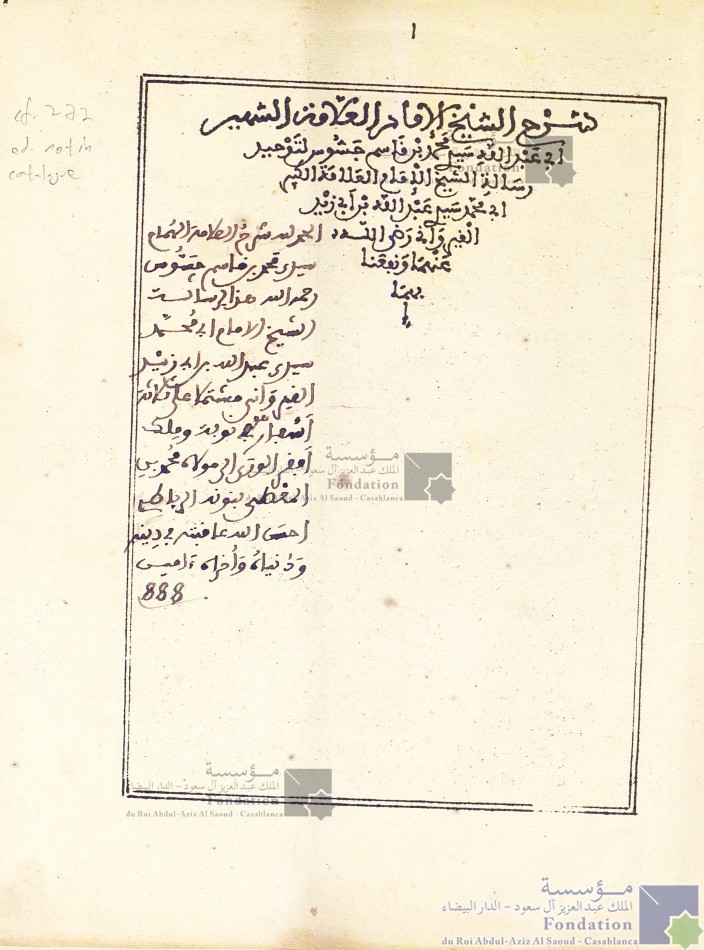 1
cf. 272
ed. not in
catalogue
شرح الشيخ الإمام العلامة الشهير
أبي عبد الله سيدي محمد بن قاسم جسوس لتوحيد
رسالة الشيخ الإمام العلامة
أبي محمد سيدي عبد الله بن أبي زيد
القيرواني رضي الله
عنهما ونفعنا
بهما
الحمد لله شرح العلامة الهمام
سيدي محمد بن قاسم جسوس
رحمه الله على رسالة
الشيخ الإمام أبي محمد
سيدي عبد الله بن أبي زيد
القيرواني مشتملا على ثلاثة
أسفار في نوبة وملك
أفقر الورى إلى مولاه محمد بن
المعطي الرباطي
أحسن الله عاقبته في دينه
ودنياه وأخراه ءامين
888
مؤسسة
الملك عبد العزيز آل سعود - الدار البيضاء
Fondation
du Roi Abdul-Aziz Al Saoud - Casablanca
مؤسسة
الملك عبد العزيز آل سعود - الدار البيضاء
Fondation
du Roi Abdul-Aziz Al Saoud - Casablanca
مؤسسة
الملك عبد العزيز آل سعود - الدار البيضاء
Fondation
du Roi Abdul-Aziz Al Saoud - Casablanca